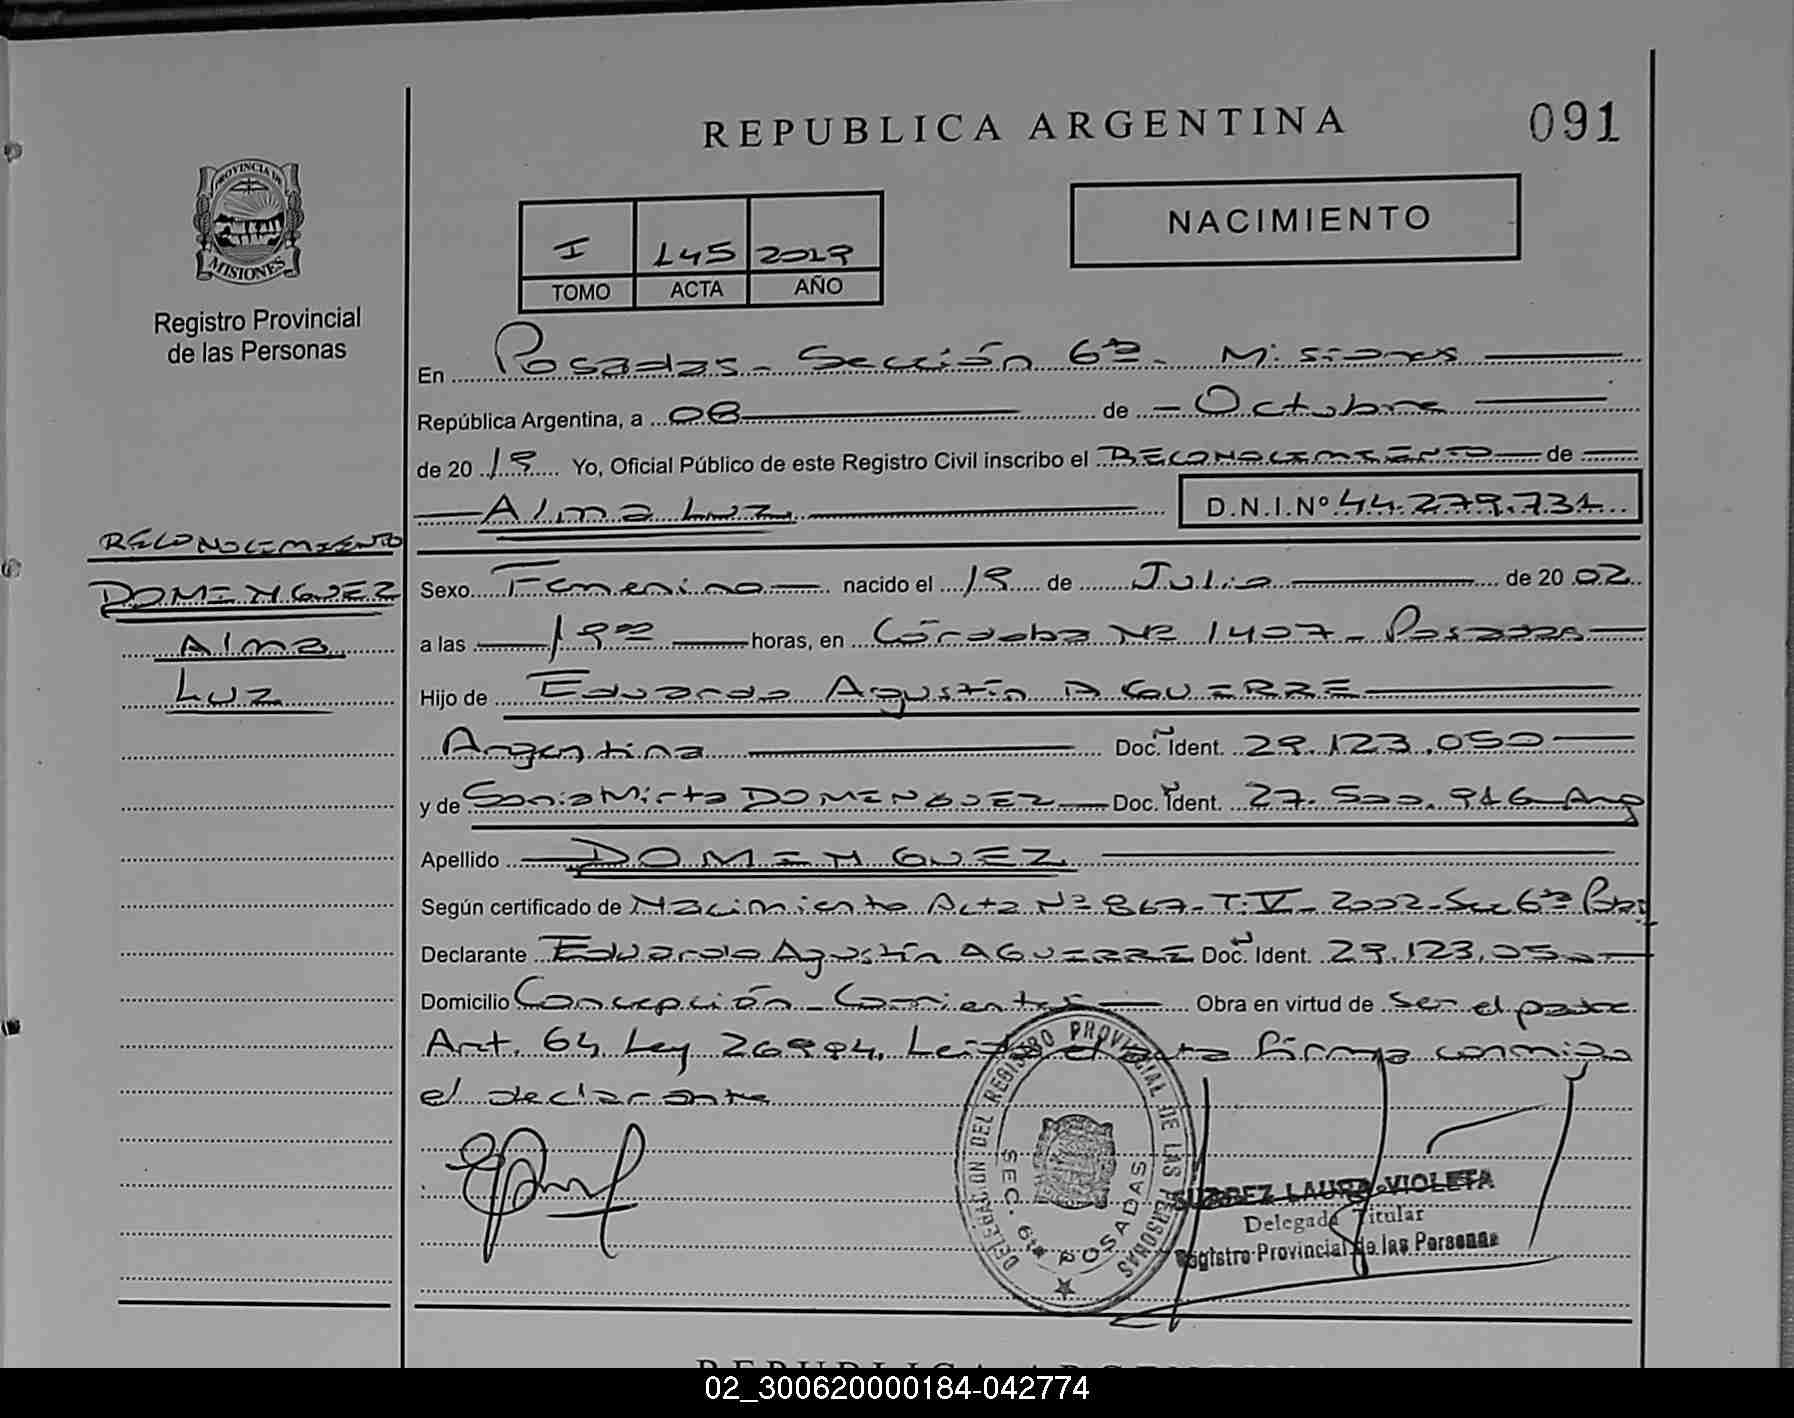 REPUBLICA ARGENTINA
091
PROVINCIA DE
MISIONES
Registro Provincial
de las Personas
NACIMIENTO
I 145 2019
TOMO ACTA AÑO
En Posadas - Sección 6ta - Misiones
República Argentina, a 08 de - Octubre
de 20 19 Yo, Oficial Público de este Registro Civil inscribo el RECONOCIMIENTO de
Alma Luz D.N.I.Nº 44.279.731
RECONOCIMIENTO
DOMINGUEZ
Alma
Luz
Sexo Femenino nacido el 19 de Julio de 20 02
a las 19 00 horas, en Córdoba Nº 1407 - Posadas
Hijo de Eduardo Agustín AGUIERRE
Argentina Doc. Ident. 29.123.050
y de Sonia Mirta DOMINGUEZ Doc. Ident. 27.500.916 Arg
Apellido DOMINGUEZ
Según certificado de Nacimiento Acta Nº 867 - T.V - 2002 - Sec 6ta Pos.
Declarante Eduardo Agustín AGUIERRE Doc. Ident. 29.123.050
Domicilio Concepción - Corrientes Obra en virtud de Ser el padre
Art. 64 Ley 26994. Leída el acta firma conmigo
el declarante
DELEGACION DEL REGISTRO PROVINCIAL DE LAS PERSONAS
SEC. 6ta POSADAS
SUAREZ LAURA VIOLETA
Delegada Titular
Registro Provincial de las Personas
02_300620000184-042774